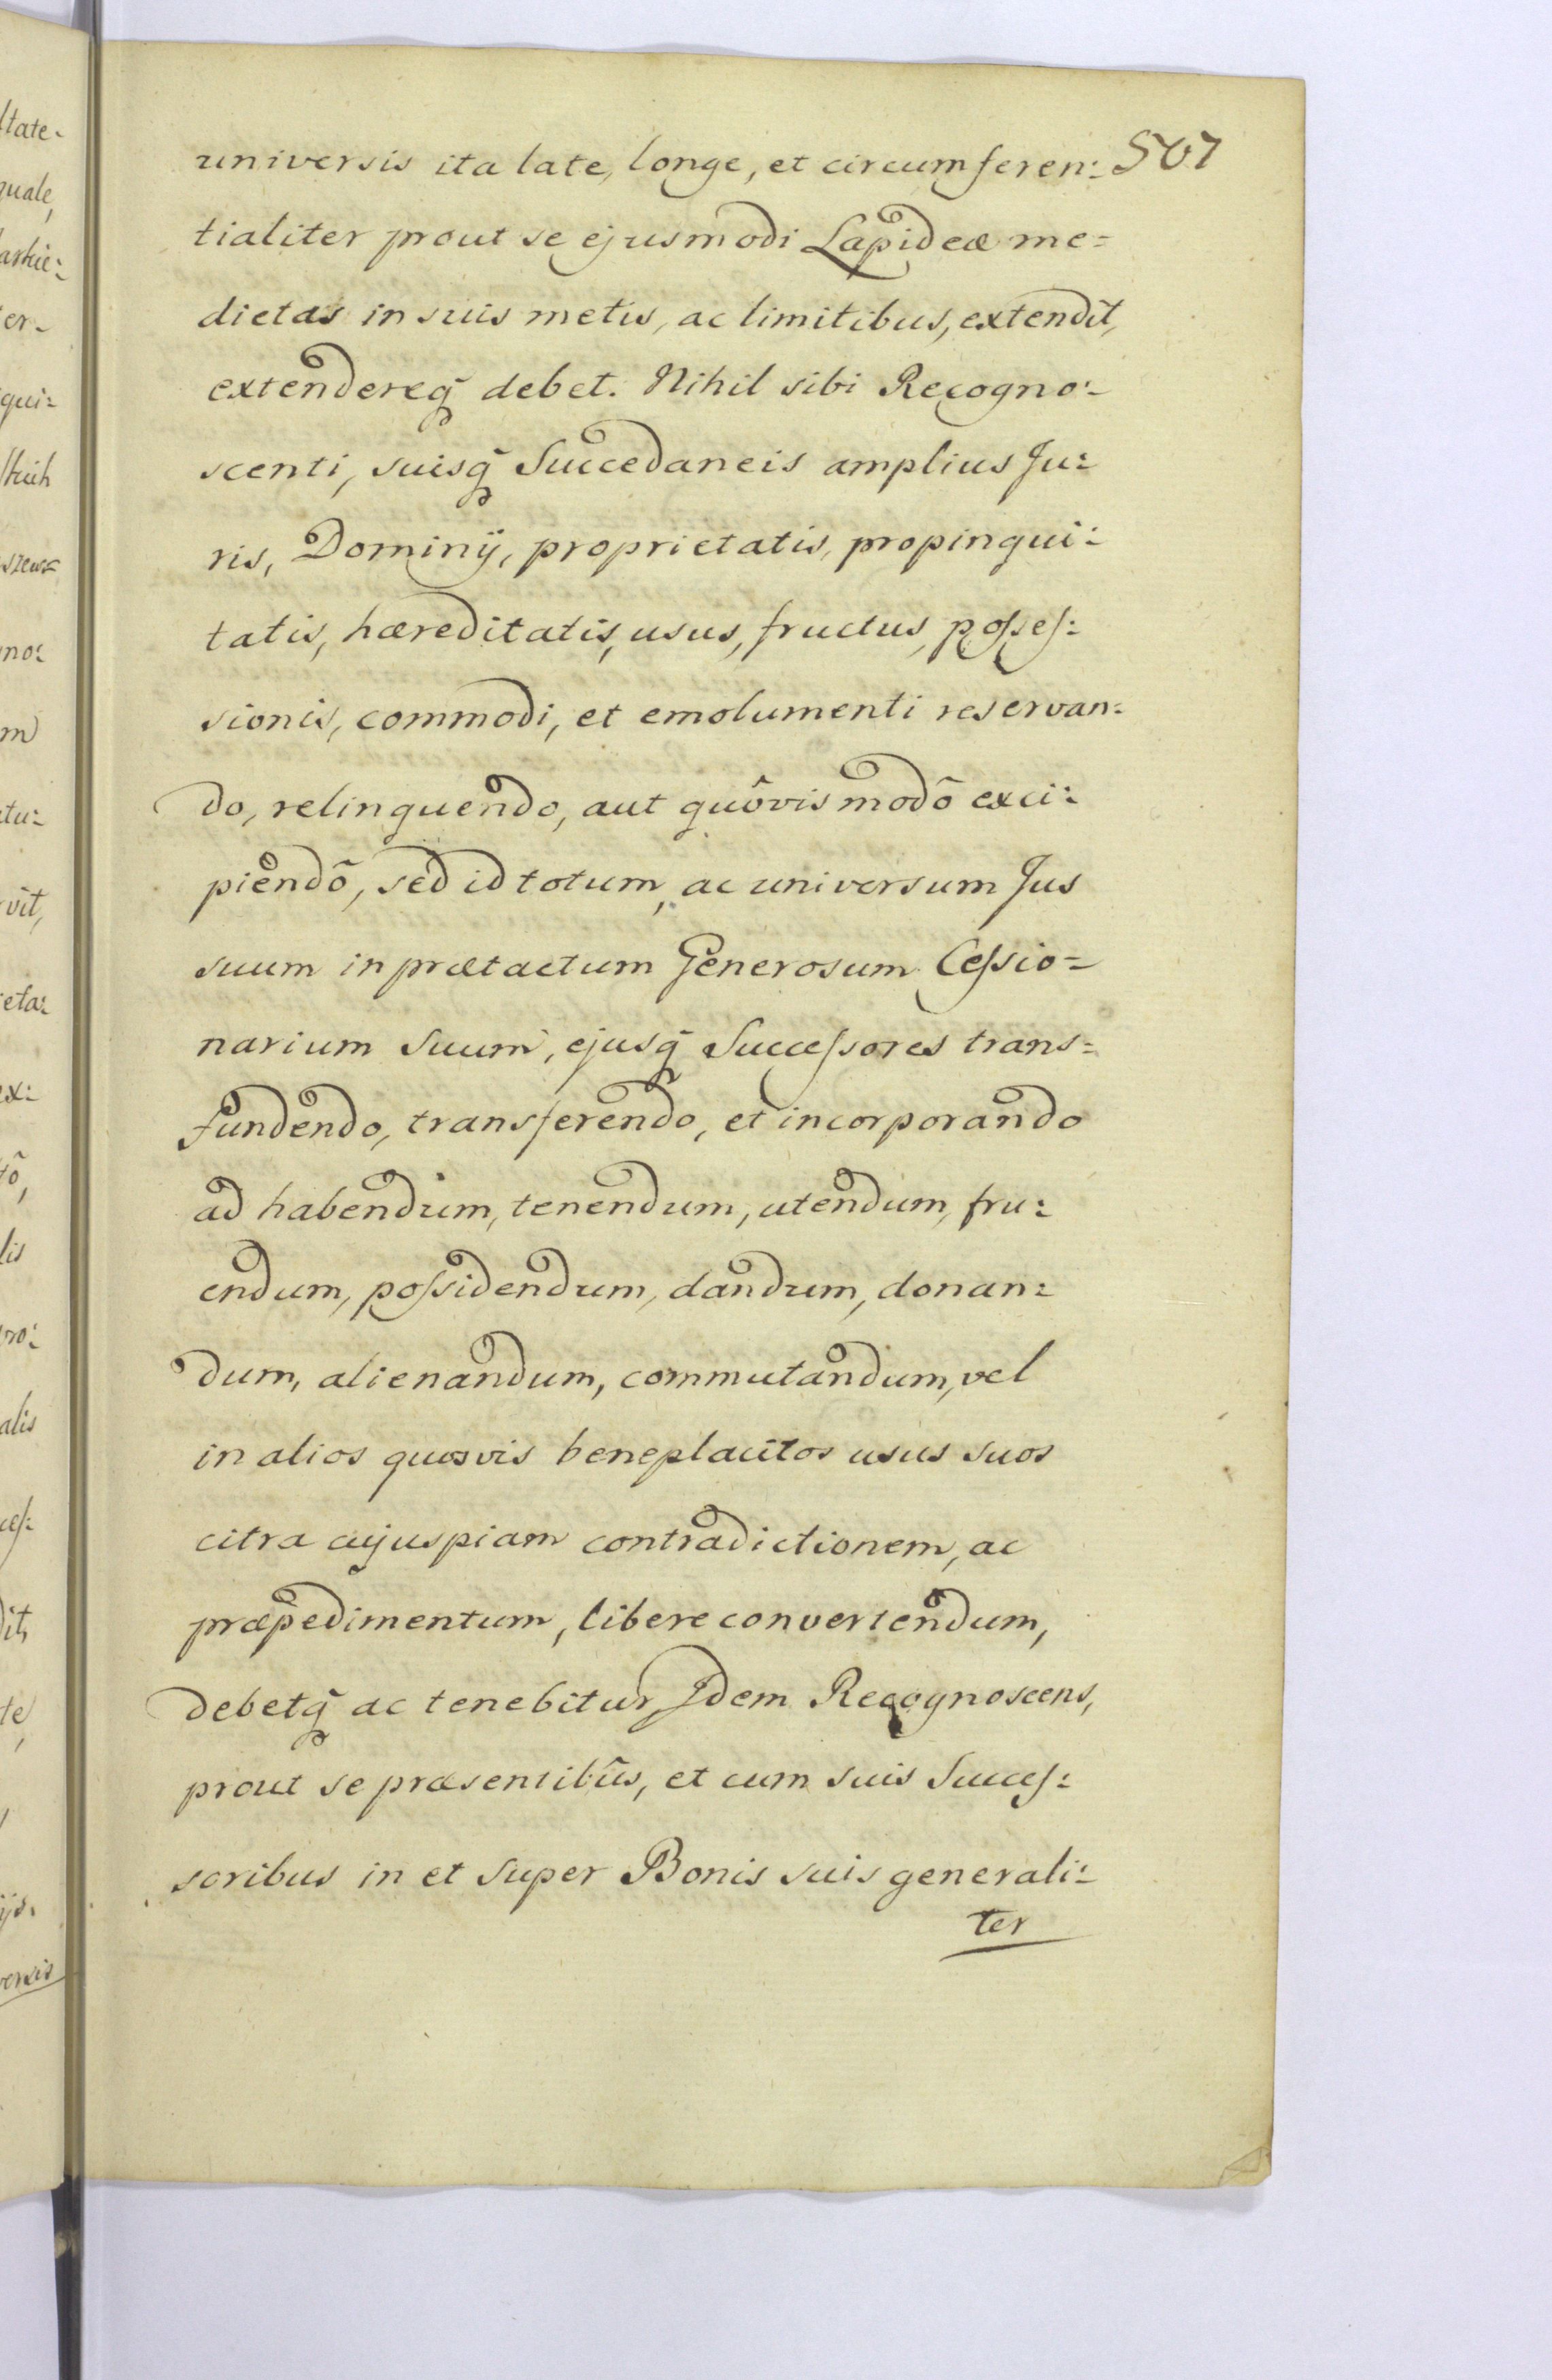 universis ita late, longe, et circumferen: 507
tialiter prout se ejusmodi Lapideæ me=
dietas in suis metis, ac limitibus, extendit,
extendereq̃ debet. Nihil sibi Recogno:
scenti, suisq̃ Succedaneis amplius Ju:
ris, Dominÿ, proprietatis, propinqui:
tatis, hæreditatis, usus, fructus, posses:
sionis, commodi, et emolumenti reservan:
do, relinquendo, aut quôvis modô exci:
piendô, sed id totum, ac universum Jus
suum in prætactum Generosum Cessio=
narium suum, ejusq̃ Successores trans=
fundendo, transferendo, et incorporando
ad habendum, tenendum, utendum, fru:
endum, possidendum, dandum, donan:
dum, alienandum, commutandum, vel
in alios quosvis beneplacitos usus suos
citra cujuspiam contradictionem, ac
præpedimentum, libere convertendum,
debetq̃ ac tenebitur, Idem Recognoscens,
prout se præsentibus, et cum suis Succes:
soribus in et super Bonis suis generali:
ter